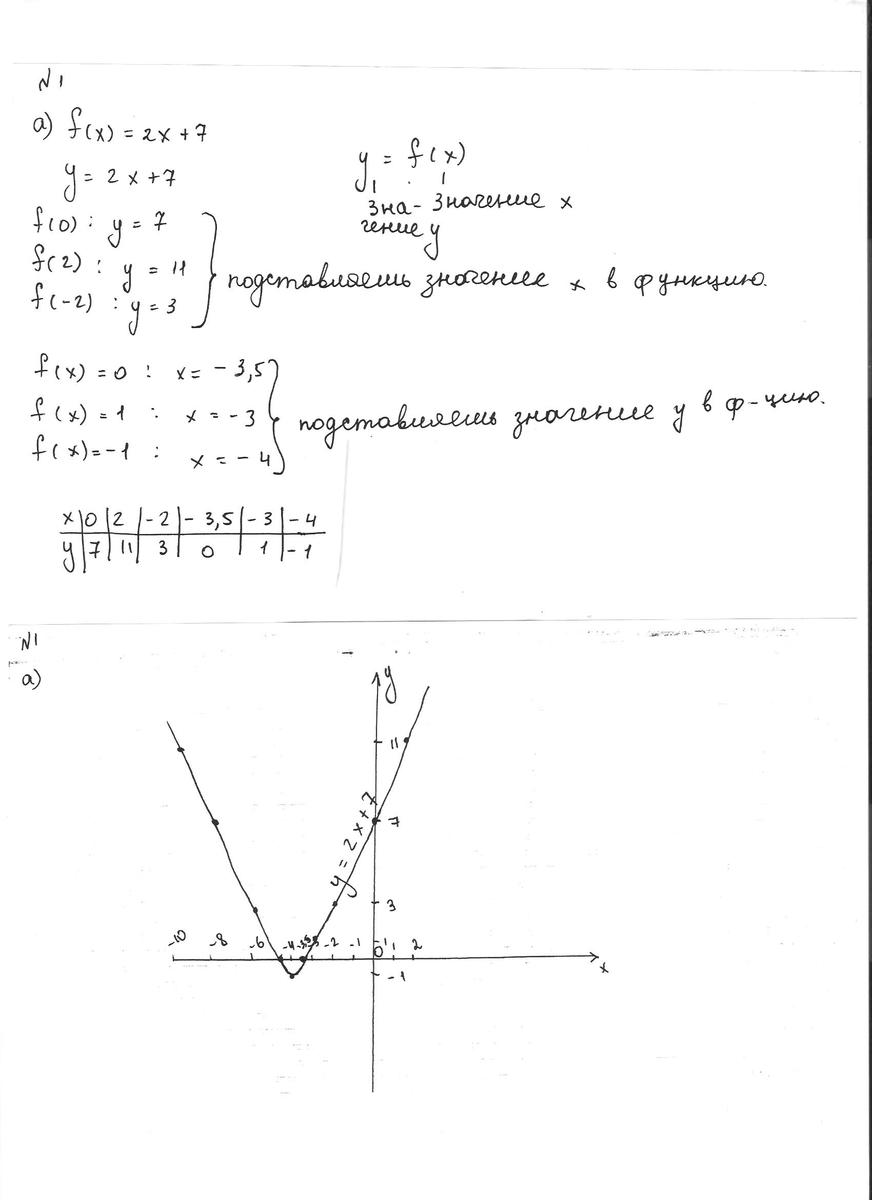 N1
а) f(x) = 2x + 7
y = 2x + 7
y = f(x)
зна- значение x
чение y
f(0) : y = 7
f(2) : y = 11
f(-2) : y = 3
подставляешь значение x в функцию.
f(x) = 0 : x = - 3,5
f(x) = 1 : x = - 3
f(x) = -1 : x = - 4
подставляешь значение y в ф-цию.
x 0 2 -2 - 3,5 - 3 - 4
y 7 11 3 0 1 -1
N1
а)
y
11
y = 2x + 7
7
3
-10 -8 -6 -4 -3 -2 -1 0 1 2
1
x
-1